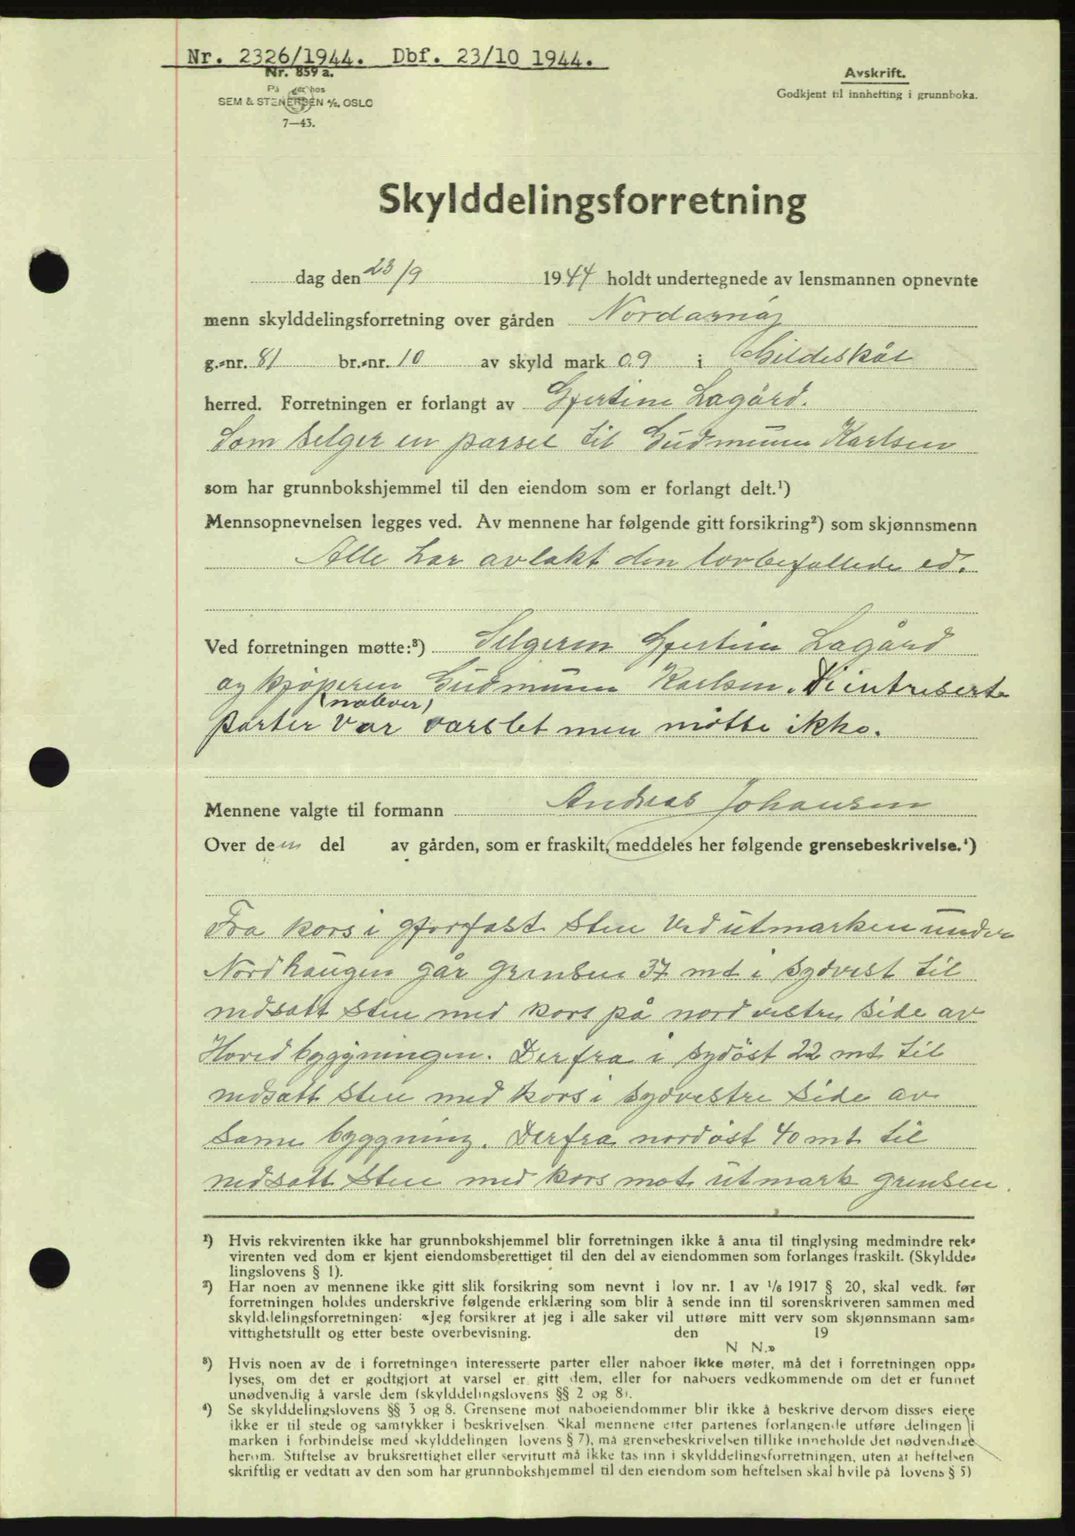 Nr. 2326/1944. Dbf. 23/10 1944.
Nr. 859 a.
På hos
SEM & STENERSEN A/S, OSLO
7—43.
Avskrift.
Godkjent til innhefting i grunnboka.
Skylddelingsforretning
dag den 23/9 1944 holdt undertegnede av lensmannen opnevnte
menn skylddelingsforretning over gården Nordarnøy
g.-nr. 81 br.-nr. 10 av skyld mark 0.9 i Gildeskål
herred. Forretningen er forlangt av Gjertine Lagård.
Som selger en parsel til Gudmunn Karlsen
som har grunnbokshjemmel til den eiendom som er forlangt delt.¹)
Mennsopnevnelsen legges ved. Av mennene har følgende gitt forsikring²) som skjønnsmenn
Alle har avlakt den lovbefallede ed.
Ved forretningen møtte:³) Selgeren Gjertine Lagård
og kjøperen Gudmunn Karlsen. De intreserte
(naboer)
parter var varslet men møtte ikke.
Mennene valgte til formann Andreas Johansen
Over den del av gården, som er fraskilt, meddeles her følgende grensebeskrivelse.⁴)
Fra kors i gjorfast sten ved utmarken under
Nordhaugen går grensen 37 mt i sydvest til
nedsatt sten med kors på nordvestre side av
Hovedbyggningen. Derfra i sydöst 22 mt til
nedsatt sten med kors i sydvestre side av
same byggning. Derfra nordöst 40 mt til
nedsatt sten med kors mot utmark grensen.
¹) Hvis rekvirenten ikke har grunnbokshjemmel blir forretningen ikke å anta til tinglysing medmindre rek-
virenten ved dom er kjent eiendomsberettiget til den del av eiendommen som forlanges fraskilt. (Skyldde-
lingslovens § 1).
²) Har noen av mennene ikke gitt slik forsikring som nevnt i lov nr. 1 av ¹/₆ 1917 § 20, skal vedk. før
forretningen holdes underskrive følgende erklæring som blir å sende inn til sorenskriveren sammen med
skylddelingsforretningen: «Jeg forsikrer at jeg i alle saker vil utføre mitt verv som skjønnsmann sam-
vittighetsfullt og etter beste overbevisning. den 19
N N.»
³) Hvis noen av de i forretningen interesserte parter eller naboer ikke møter, må det i forretningen opp-
lyses, om det er godtgjort at varsel er gitt dem, eller for naboers vedkommende om det er funnet
unødvendig å varsle dem (skylddelingslovens §§ 2 og 8).
⁴) Se skylddelingslovens §§ 3 og 8. Grensene mot naboeiendommer blir ikke å beskrive dersom disses eiere
ikke er til stede og samtykker i beskrivelsen. Skal mennene etter partenes forlangende utføre delingen i
marken i forbindelse med skylddelingen lovens § 7), må grensebeskrivelsen tillike inneholde det nødvendige
herom. Stiftelse av bruksrettighet eller servitutt må ikke tas inn i skylddelingsforretningen, uten at heftelsen
skriftlig er vedtatt av den som har grunnbokshjemmel til den eiendom som heftelsen skal hvile på lovens § 5)